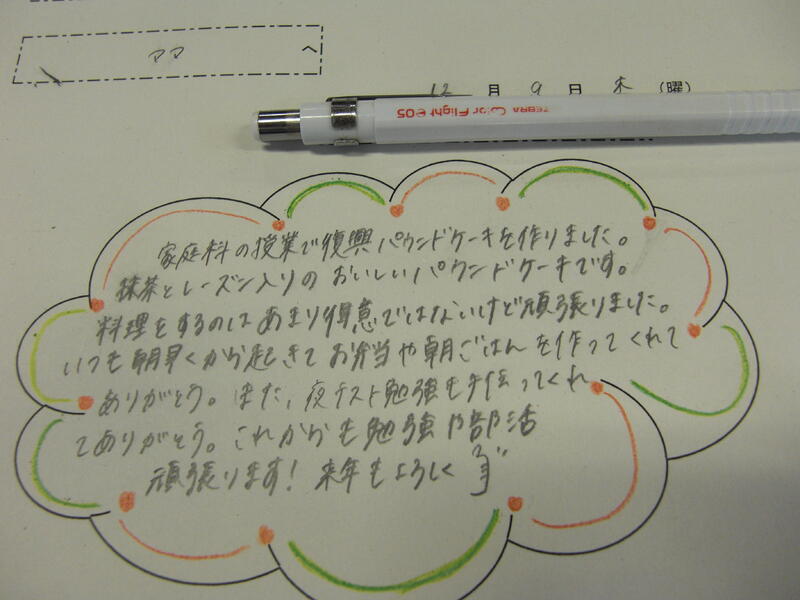 ママ へ
12 月 9 日 木 (曜)
ZEBRA Color Flight 0.5
家庭科の授業で復興パウンドケーキを作りました。
抹茶とレーズン入りのおいしいパウンドケーキです。
料理をするのはあまり得意ではないけど頑張りました。
いつも朝早くから起きてお弁当や朝ごはんを作ってくれて
ありがとう。また、夜テスト勉強も手伝ってくれ
てありがとう。これからも勉強や部活
頑張ります！来年もよろしく